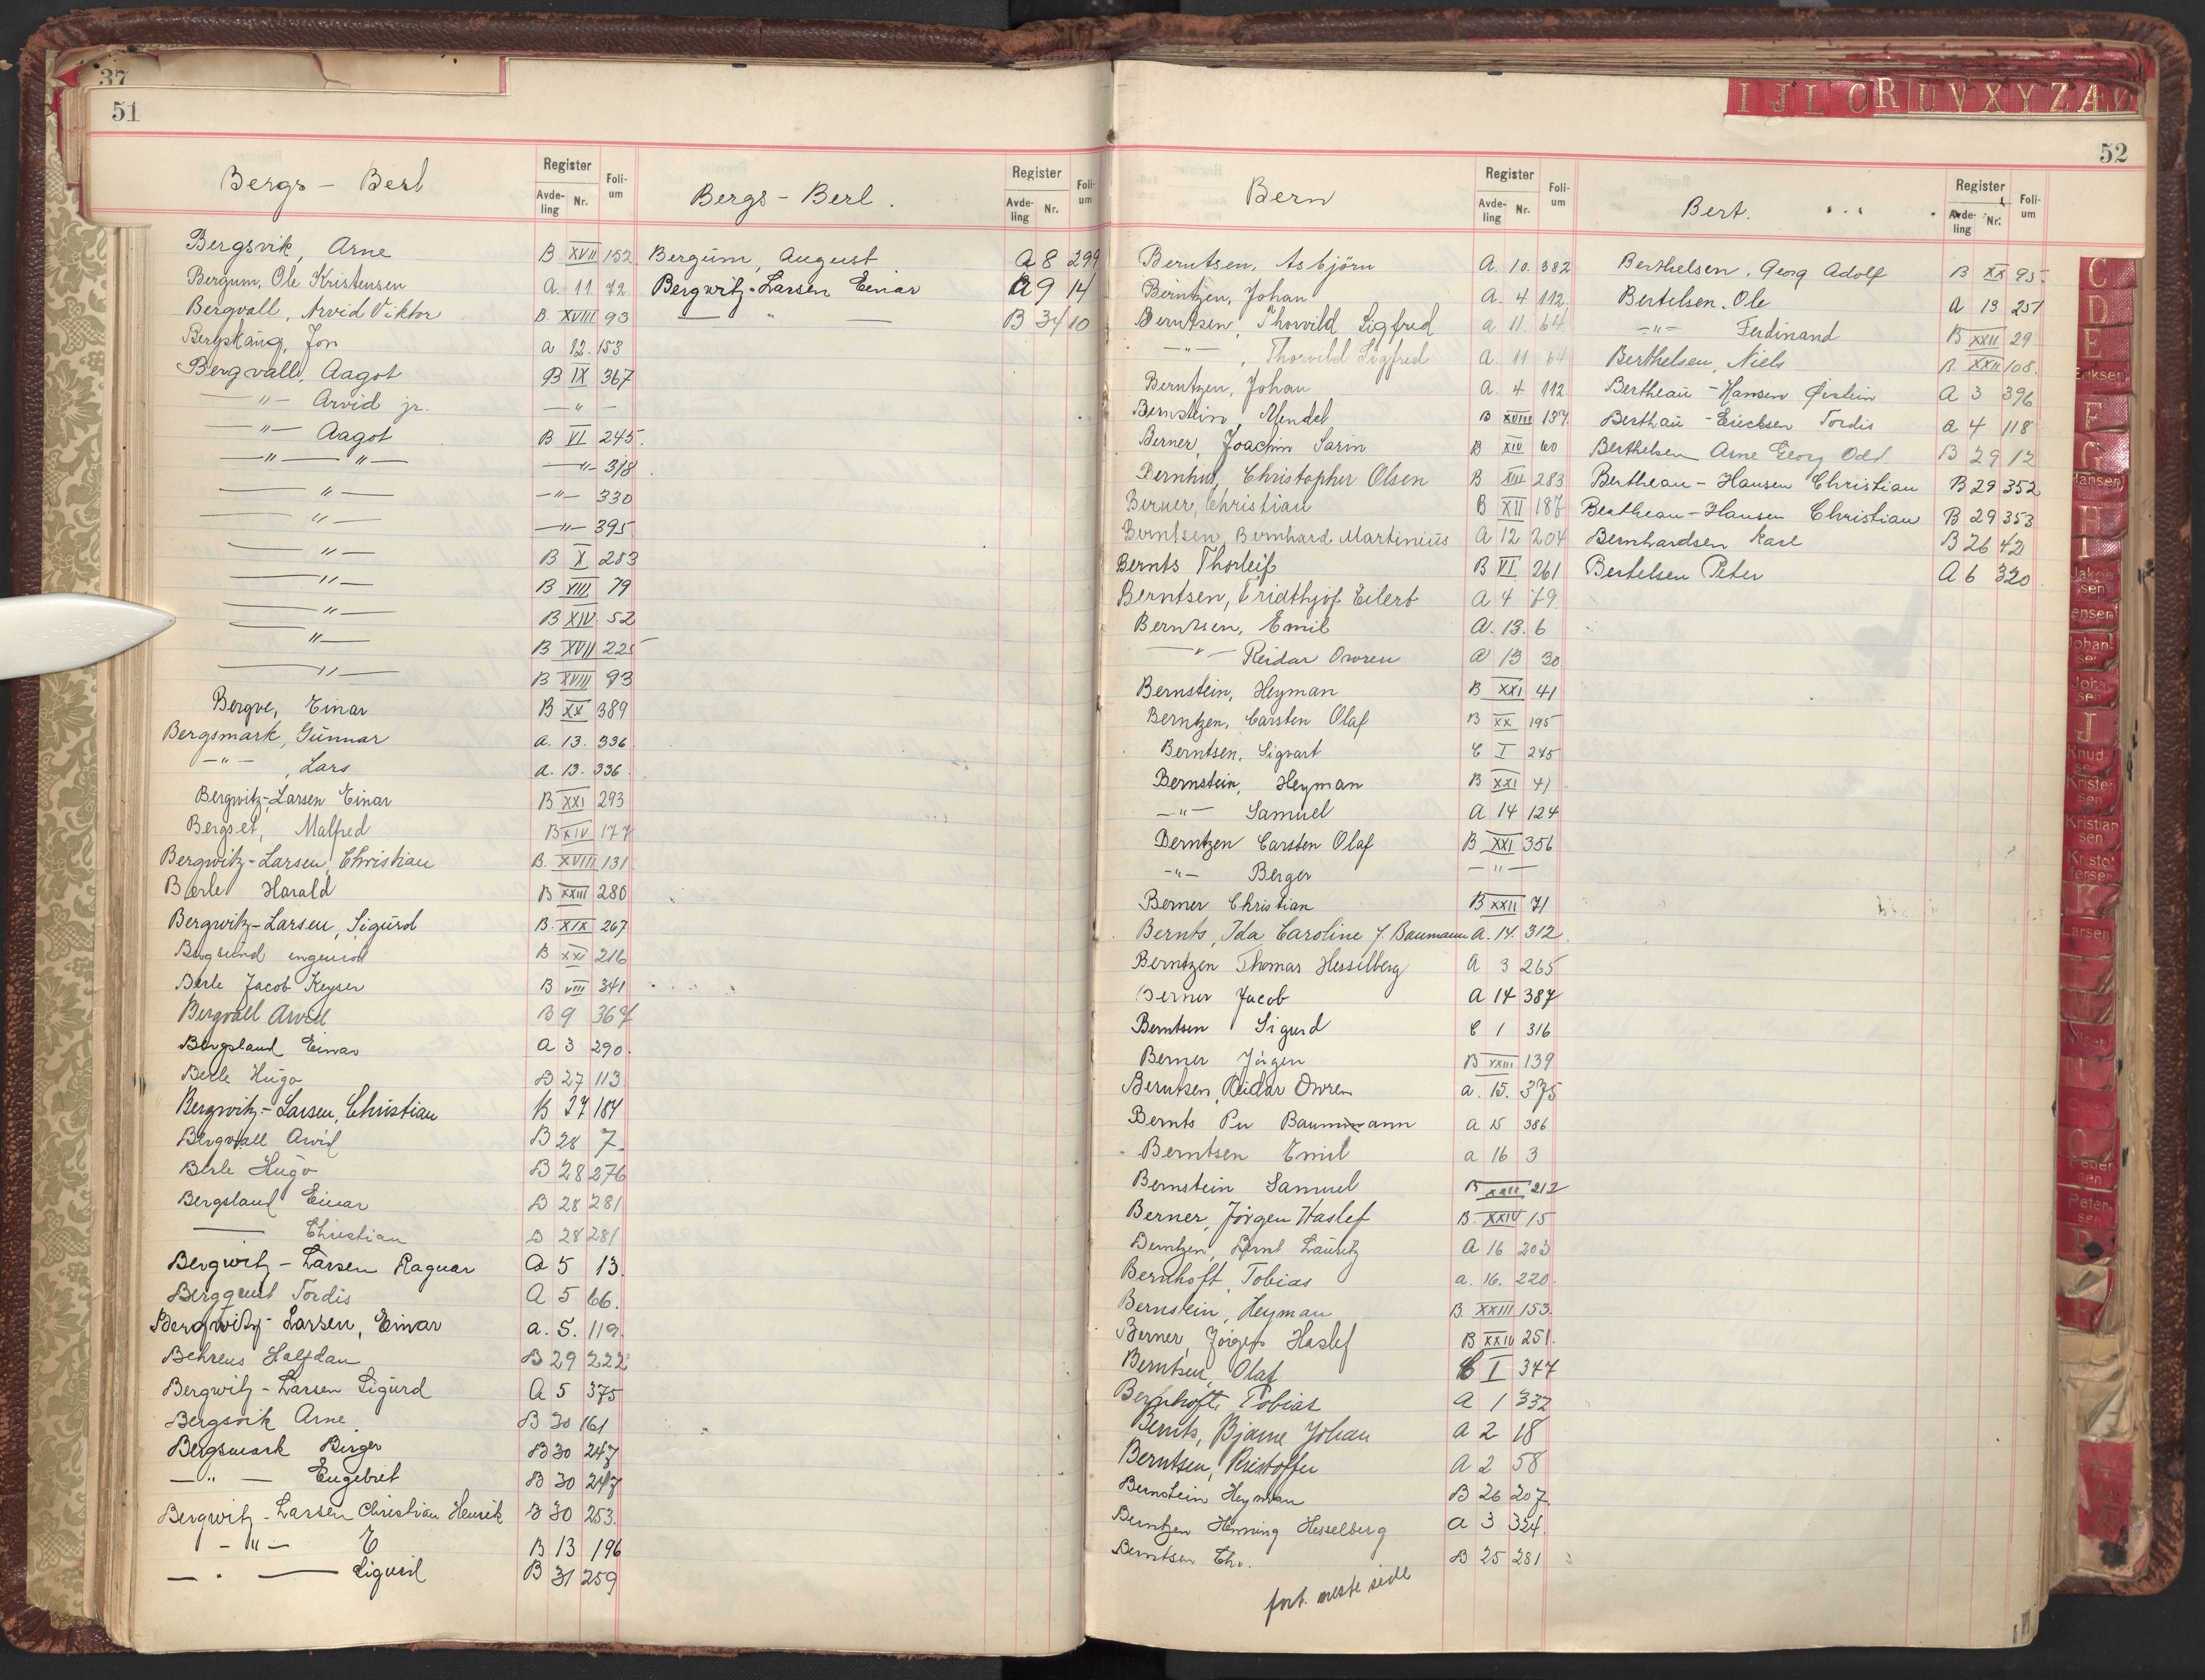 37
51
Bergs - Berl
Register
Avdeling Nr. Folium
Bergsvik, Arne B XVII 152
Bergum, Ole Kristensen A. 11. 72
Bergvall, Arvid Viktor B. XVIII 93
Jon a 12. 153
Bergvall, Aagot B IX 367
—"— Arvid jr. —"—
—"— Aagot B VI 245.
—"— —"— —"— 318
—"— —"— 330
—"— —"— 395
—"— B X 283
—"— B VIII 79
—"— B XIV 52
—"— B XVII 225
—"— B XVIII 93
Bergve, Einar B XX 389
Bergsmark, Gunnar a. 13. 336
—"—, Lars a. 13. 336
Bergwitz-Larsen Einar B XXI 293
Bergset, Malfred B XIV 177
Bergwitz-Larsen, Christian B. XVIII 131
Berle Harald B XXIII 280
Bergwitz-Larsen, Sigurd B. XIX 267
Bergsund B XXI 216
Berle Jacob Keyser B VIII 341
Bergvall Arvid B 9 367
Bergsland Einar A 3 290
Berle Hugo B 27 113
Bergwitz-Larsen, Christian B 27 184
Bergvall Arvid B 28 7
Berle Hugo B 28 276
Bergsland Einar B 28 281
—— Christian B 28 281
Bergwitz-Larsen Ragnar A 5 13
Bergquist Tordis A 5 66.
Bergwitz-Larsen, Einar a. 5. 119
Behrens Halfdan B 29 222
Bergwitz-Larsen Sigurd A 5 375
Bergsvik Arne B 30 161
Bergsmark Birger B 30 247
—"— Engebret B 30 247
Bergwitz-Larsen Christian Henrik B 30 253
—"— E B 13 196
—"— Sigurd B 31 259
Bergs - Berl.
Register
Avdeling Nr. Folium
Bergum, August A 8 299
Bergwitz-Larsen Einar A 9 14
—"— B 34 10
52
I J L O R U V X Y Z Æ Ø
Bern
Register
Avdeling Nr. Folium
Berntsen, Asbjørn A. 10. 382
Berntzen, Johan A. 4 112
Berntsen, Thorvild Sigfred a 11. 64
—"—, Thorvild Sigfred A. 11 64
Berntzen, Johan A. 4 112
Bernstein, Mendel B XVIII 137.
Berner, Joachim Sarin B XIV 60
Bernhus, Christopher Olsen B XIII 283
Berner, Christian B XII 187
Berntsen, Bernhard Martinius A 12 204
Bernts Thorleif B VI 261
Berntsen, Fridthjof Eilert A 4 79
Berntsen, Emil A. 13. 6
—"— Reidar Owren A 13 30
Bernstein, Heyman B XXI 41
Berntzen, Carsten Olaf B XX 195
Berntsen, Sigvart C I 245
Bernstein, Heyman B XXI 41
—"— Samuel A 14 124
Berntzen Carsten Olaf B XXI 356
—"— Berger —"—
Berner Christian B XXII 71
Bernts, Ida Caroline f. Baumann A. 14. 312
Berntzen Thomas Hesselberg A 3 265
Berner Jacob A 14 387
Berntsen Sigurd C 1 316
Berner Jörgen B XXIII 139
Berntsen, Reidar Owren a. 15. 375
Bernts Per Baumann A 15 386
Berntsen Emil a 16 3
Bernstein Samuel B XXII 212
Berner, Jörgen Haslef B. XXIV 15
Berntzen, Bernt Lauritz A 16 203
Bernhoft, Tobias a. 16. 220
Bernstein, Heyman B. XXIII 153
Berner, Jörgen Haslef B XXIV 251.
Berntsen, Olaf C I 347
Bernhoft, Tobias A 1 332
Bernts, Bjarne Johan A 2 18
Berntsen, Kristoffer A 2 58
Bernstein Heyman B 26 207
Berntzen Henning Hesselberg A 3 324
Berntsen Chr. B 25 281
fort. neste side
Bert.
Register
Avdeling Nr. Folium
Berthelsen, Georg Adolf B XX 95
Bertelsen, Ole A 13 251
—"— Ferdinand B XXII 29
Berthelsen, Niels B. XXII 108.
Bertheau-Hansen Øistein A 3 396
Berthau-Ericksen Tordis A 4 118
Berthelsen Arne Georg Odd B 29 12
Bertheau-Hansen Christian B 29 352
Bertheau-Hansen Christian B 29 353
Bernhardsen Karl B 26 42
Bertelsen Peter A 6 320
C
D
E
Eriksen
F
G
Hansen
H
I
Jakobsen
Jensen
Johansen
Johnsen
J
Knudsen
Kristensen
Kristiansen
Kristoffersen
K
Larsen
Pedersen
Petersen